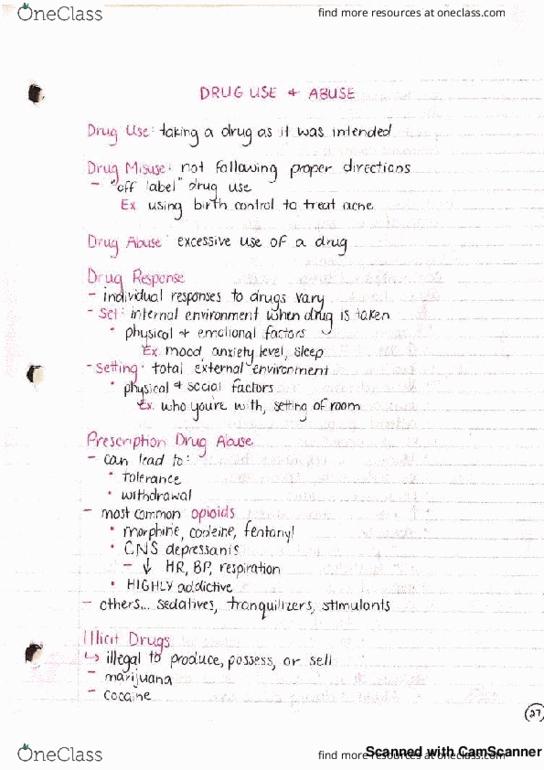 OneClass
find more resources at oneclass.com
DRUG USE + ABUSE
Drug Use: taking a drug as it was intended
Drug Misuse: not following proper directions
- "off label" drug use
Ex. using birth control to treat acne
Drug Abuse: excessive use of a drug
Drug Response
- individual responses to drugs vary
- Set: internal environment when drug is taken
• physical + emotional factors
Ex. mood, anxiety level, sleep
- Setting: total external environment
• physical + social factors
Ex. who you're with, setting of room
Prescription Drug Abuse
- can lead to:
• tolerance
• withdrawal
- most common opioids
• morphine, codeine, fentanyl
• CNS depressants
- ↓ HR, BP, respiration
• HIGHLY addictive
- others... sedatives, tranquilizers, stimulants
Illicit Drugs
↳ illegal to produce, possess, or sell
- marijuana
- cocaine
27
OneClass
find more resources at oneclass.com
Scanned with CamScanner